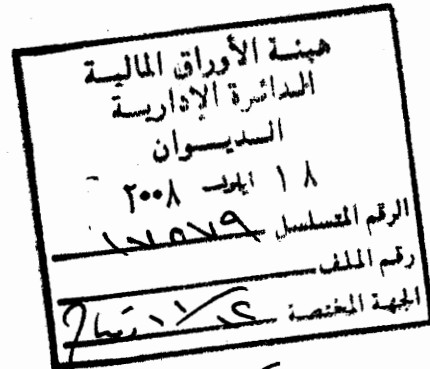 هيئة الأوراق المالية
الدائرة الإدارية
الديوان
١٨ ايلول ٢٠٠٨
الرقم المتسلسل ١٧٥٧٩
رقم الملف
الجهة المختصة